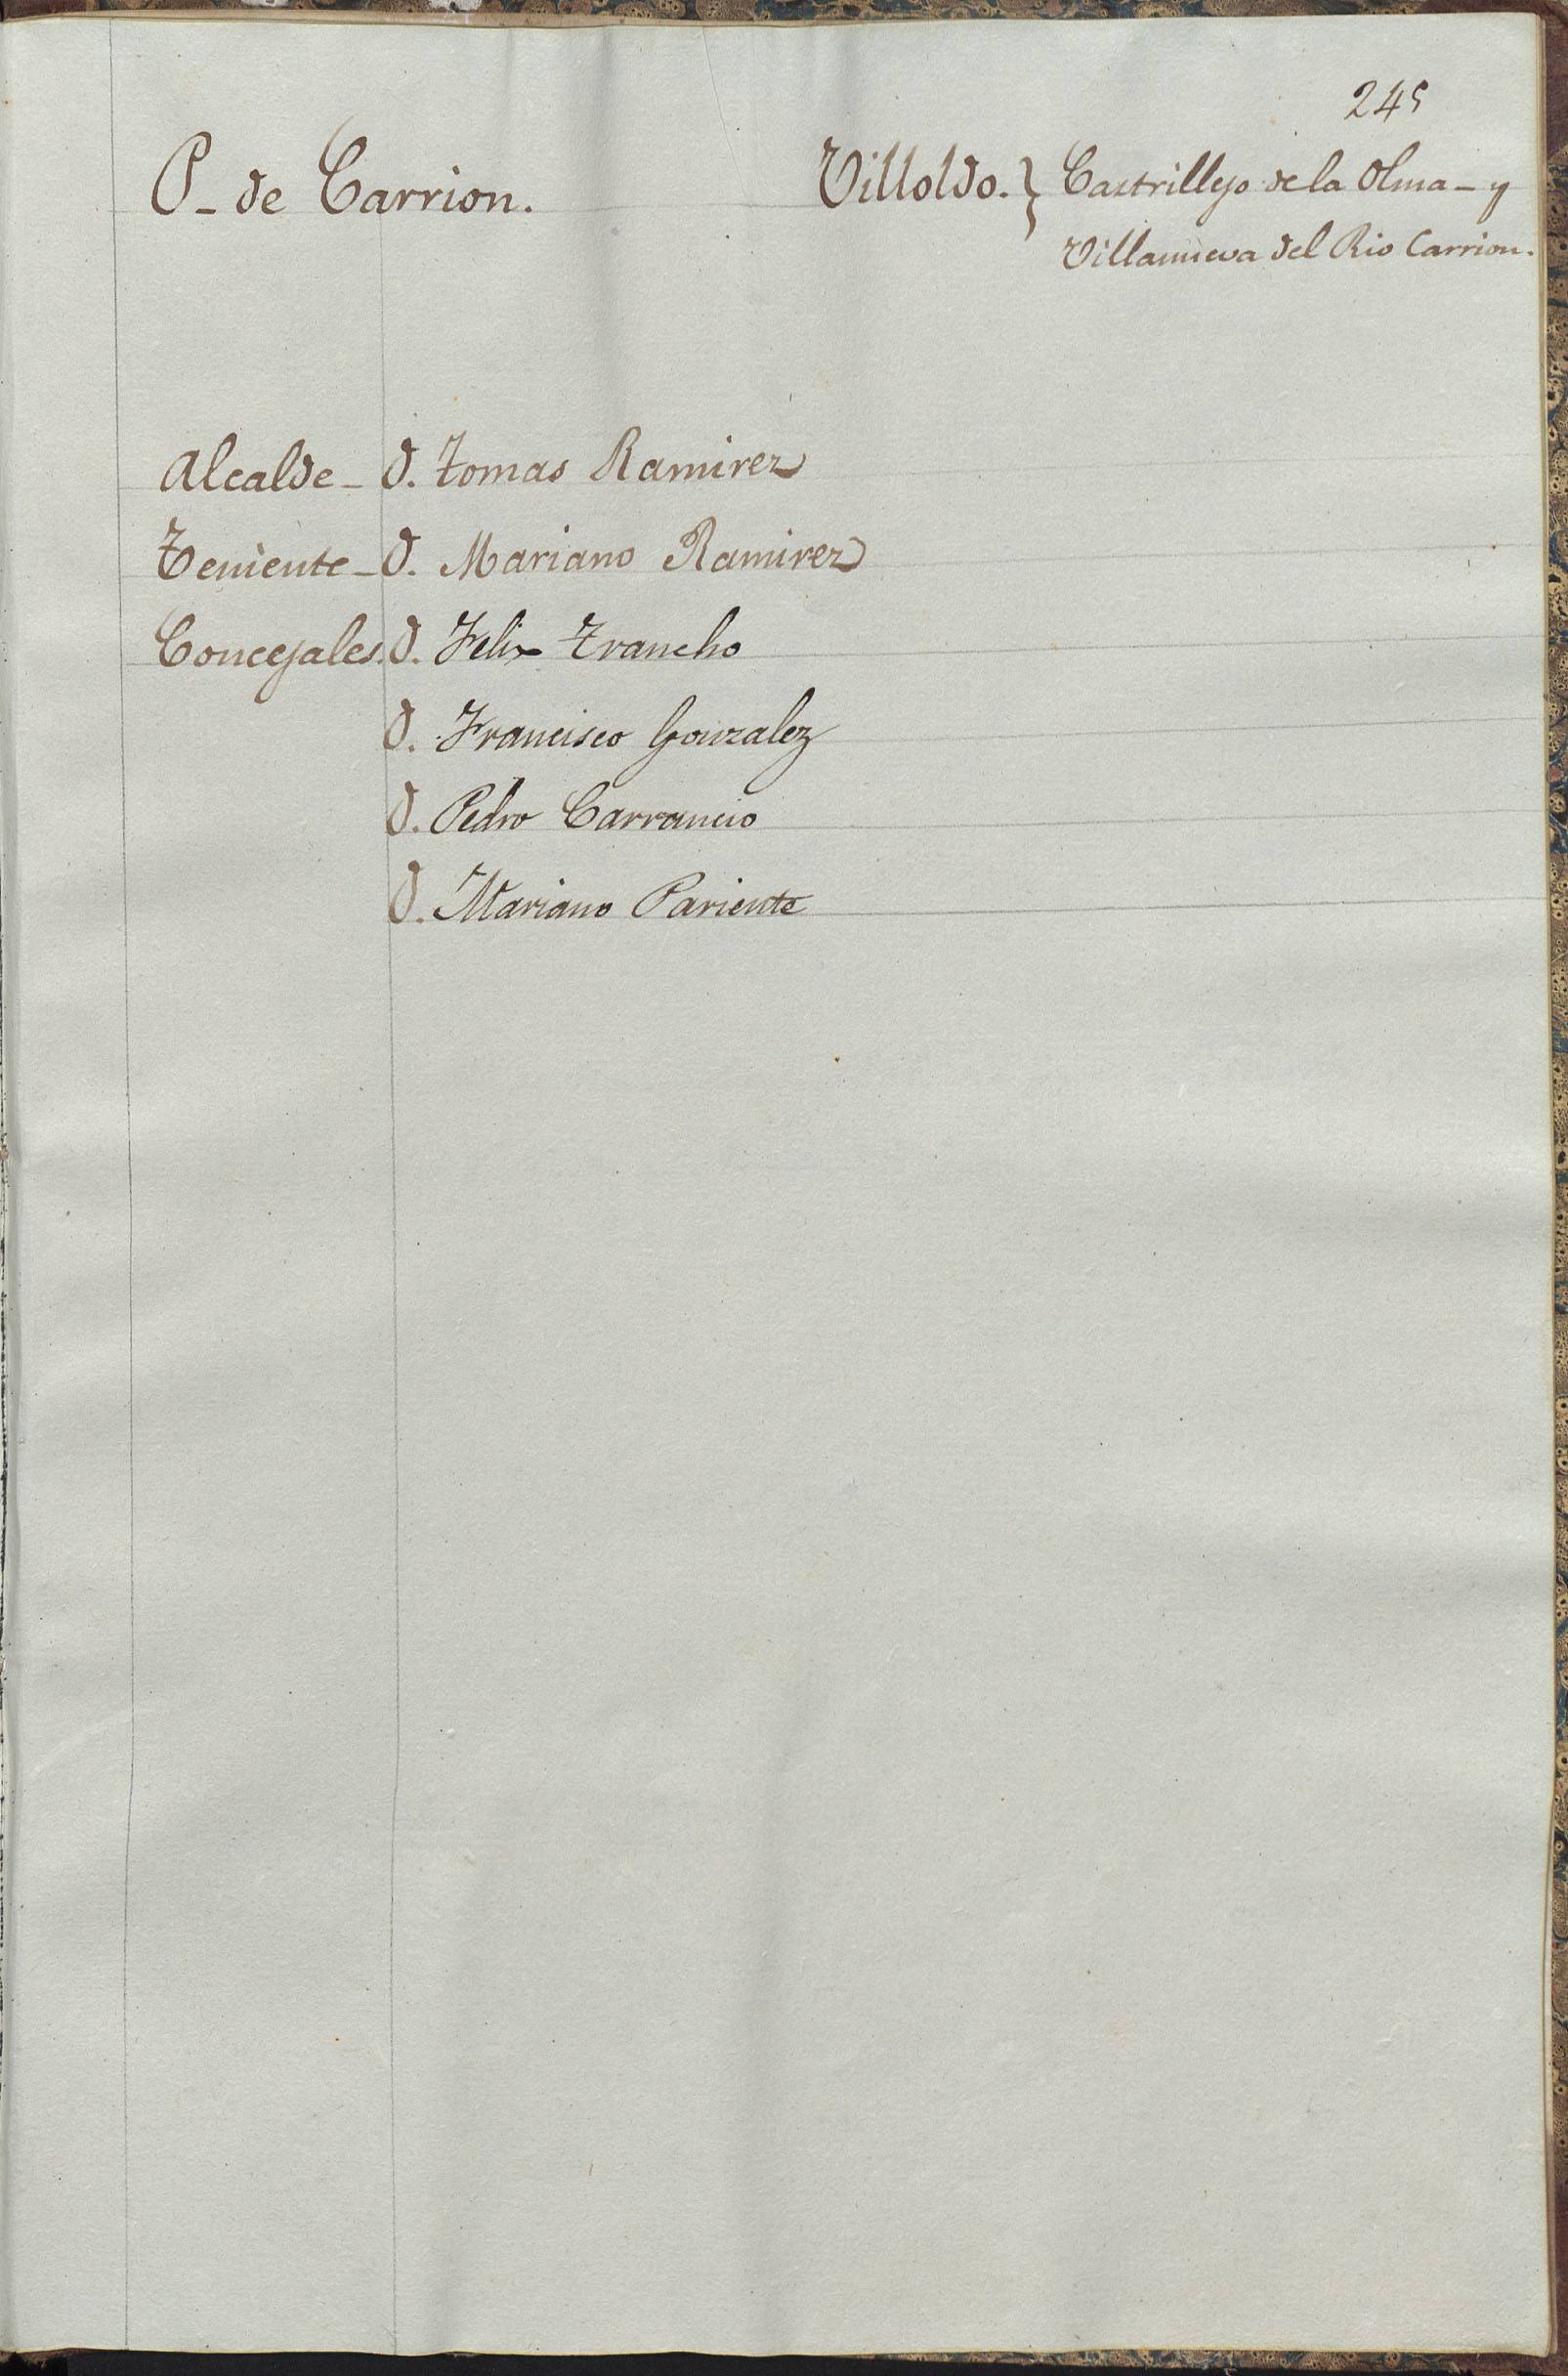 245
P_ de Carrion. Villoldo. } Castrillejo de la Olma_ y
Villanueva del Rio Carrion.
Alcalde_ D. Tomas Ramirez
Teniente_ D. Mariano Ramirez
Concejales. D. Felix Trancho
D. Francisco Gonzalez
D. Pedro Carrancio
D. Mariano Pariente